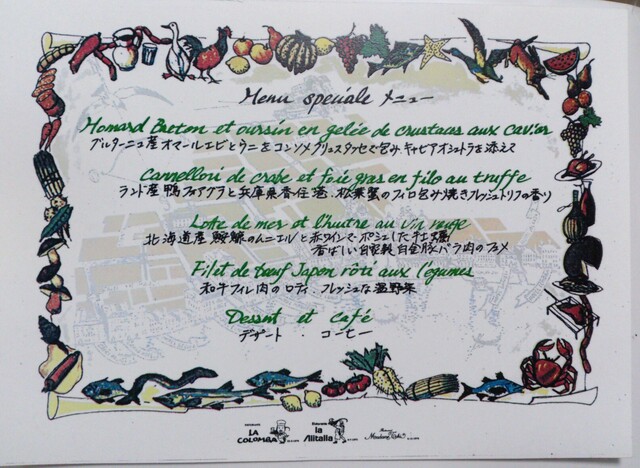 Menu speciale メニュー
Homard Breton et oursin en gelée de crustacus aux caviar
ブルターニュ産オマールエビとウニをコンソメクリュスタッセで包みキャビアオシェトラを添えて
Cannelloni de crabe et foie gras en filo au truffe
ランド産鴨フォアグラと兵庫県香住港、松葉蟹のフィロ包み焼きフレッシュトリフの香り
Lotte de mer et l'huitre au vin rouge
北海道産鮟鱇のムニエルと赤ワインでポシェした牡蠣
香ばしい自家製白金豚バラ肉のフュメ
Filet de bœuf Japon rôti aux légumes
和牛フィレ肉のロティ、フレッシュな温野菜
Dessert et Café
デザート . コーヒー
LA COLOMBA
la Alitalia